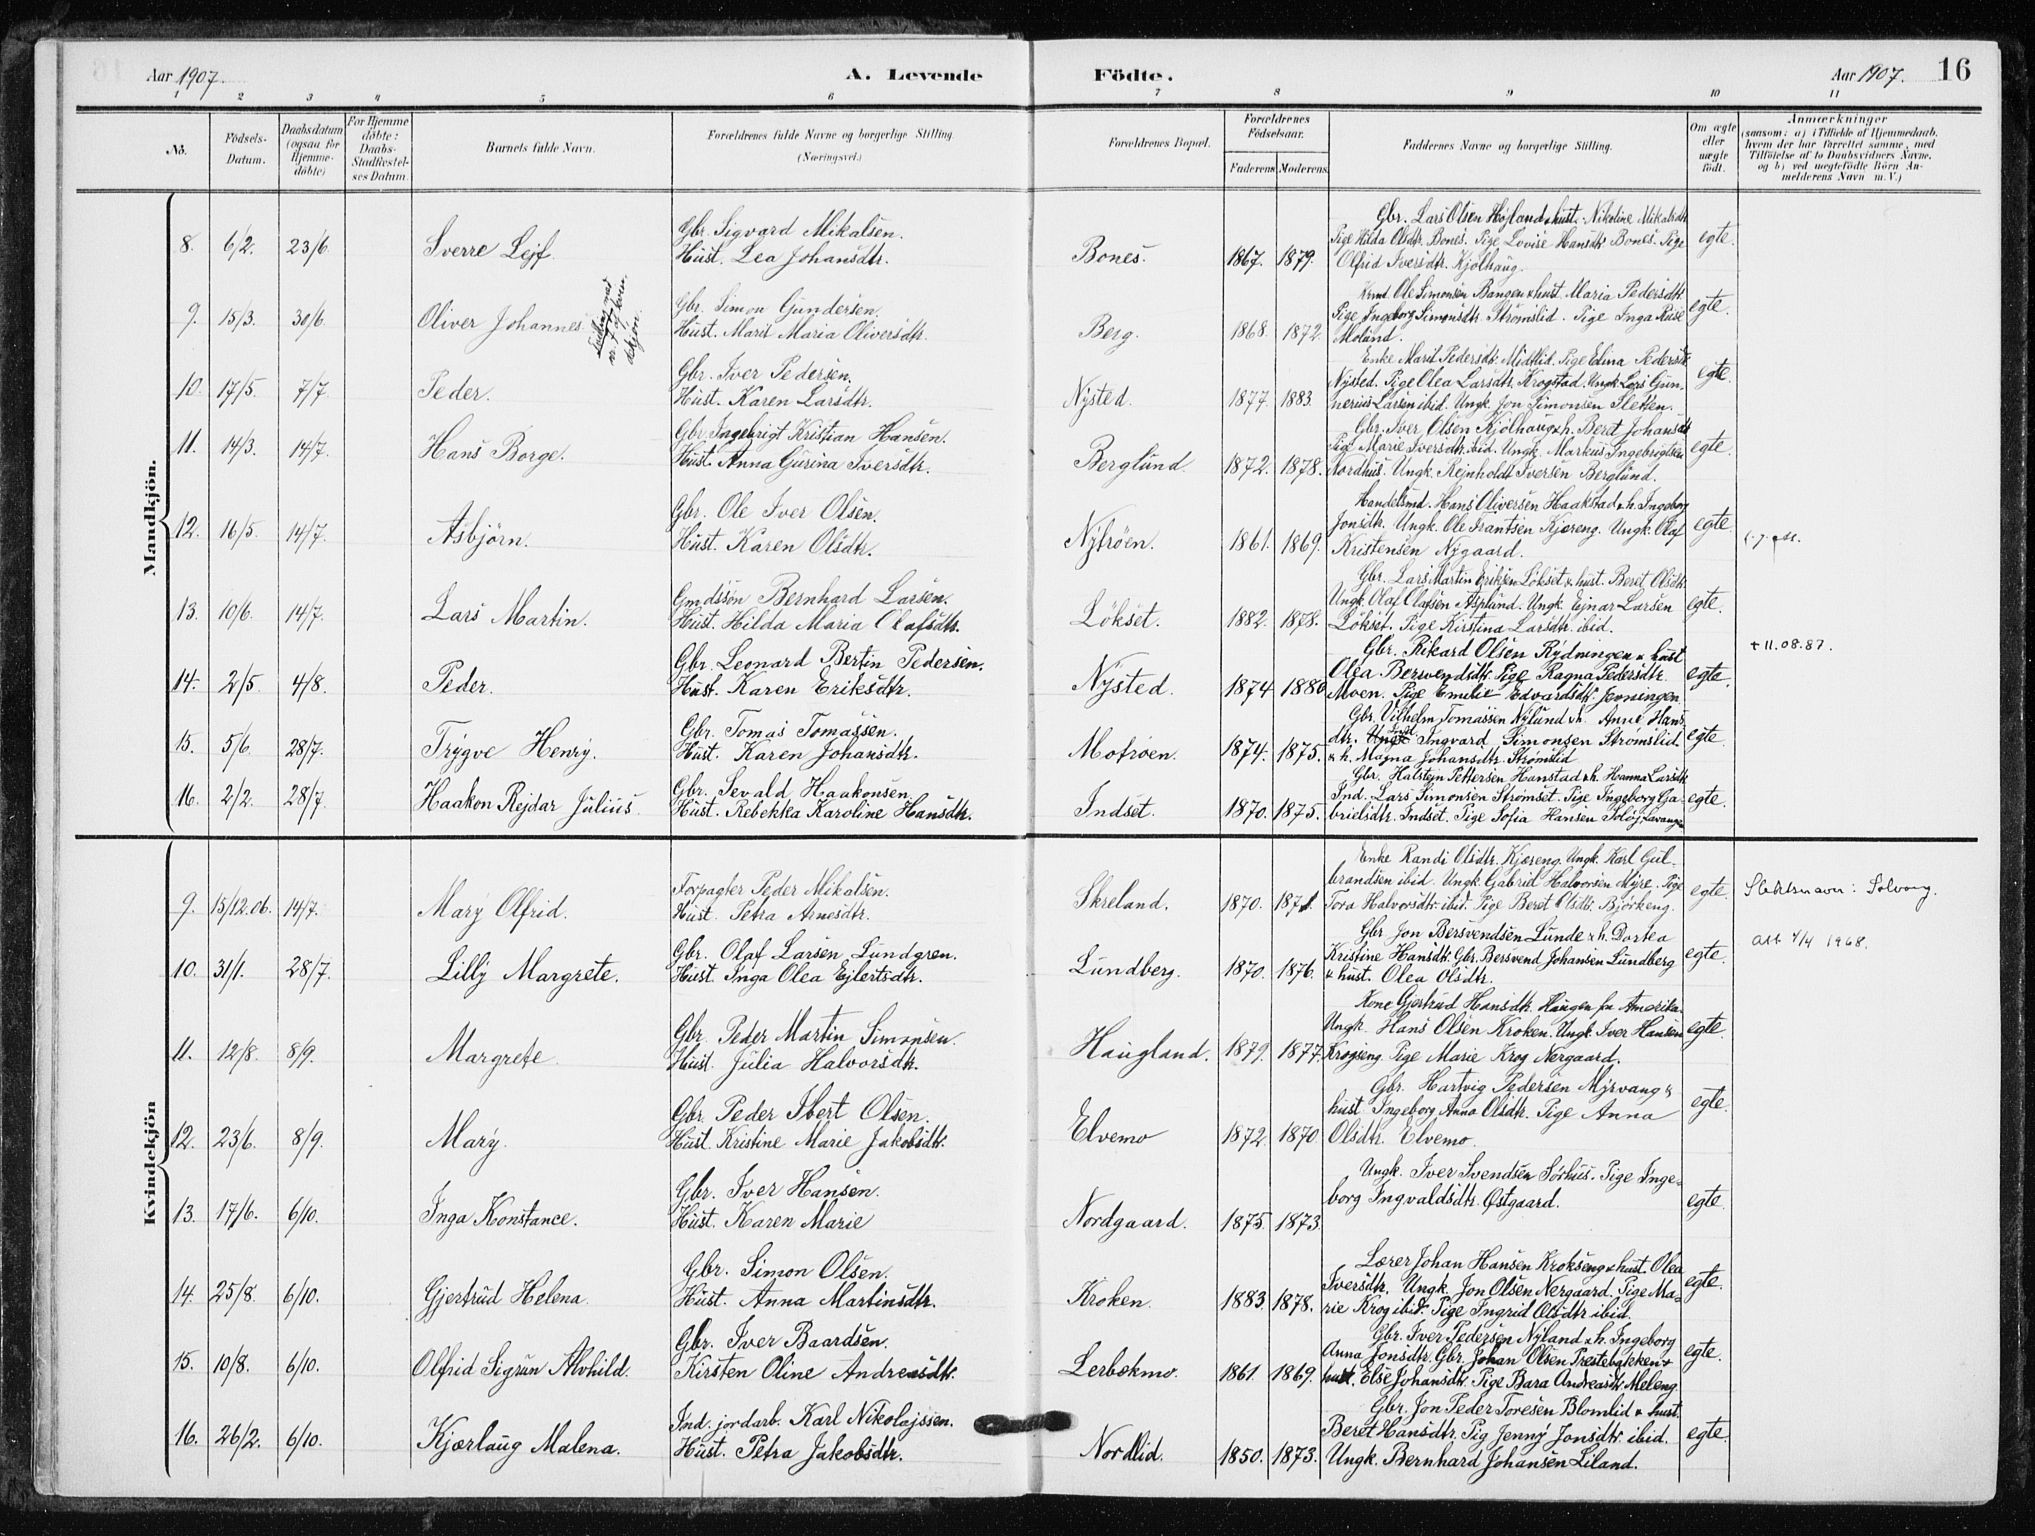 Aar 1907.
A. Levende
Födte.
Aar 1907.
16
1 2 3 4 5 6 7 8 9 10 11
No.
Födsels-Datum.
Daabsdatum (ogsaa for Hjemme-döbte)
For Hjemme döbte: Daabs-Stadfæstel-ses Datum.
Barnets fulde Navn.
Forældrenes fulde Navne og borgerlige Stilling. (Næringsvei.)
Forældrenes Bopæl.
Forældrenes Fødselsaar.
Faderens Moderens
Faddernes Navne og borgerlige Stilling.
Om ægte eller uægte født.
Anmærkninger
(saasom: a) i Tilfælde af Hjemmedaab,
hvem der har forrettet samme, med
Tilföielse af to Daabsvidners Navne,
og b) ved uægtefödte Börn An-
melderens Navn m. V.)
Mandkjön.
8. 6/2. 23/6 Sverre Lejf
Gbr. Sigvard Mikalsen.
Hust. Lea Johansdtr.
Bones. 1867. 1879.
Gbr. Lars Olsen Højland & hust. Nikoline Mikalsdtr
Pige Hilda Olsdtr. Bones. Pige Lovise Hansdtr Bones. Pige
Olfrid Iversdtr. Kjølhaug.
egte.
9. 15/3. 30/6 Oliver Johannes
Gbr. Simon Gundersen.
Hust. Marit Maria Oliversdtr.
Berg. 1868. 1872
Ole Simonsen Bangen & hust. Maria Pedersdtr
Pige Ingeborg Simonsdtr Strømslid. Pige Inga
Moland.
egte.
10. 17/5. 7/7 Peder.
Gbr. Iver Pedersen.
Hust. Karen Larsdtr.
Nysted. 1877. 1883.
Enke Marit Pedersdtr. Midtlid. Pige Edina Pedersdtr
Nysted. Pige Olea Larsdtr. Krogstad. Ungk. Lars Gun-
nerius Larsen ibid. Ungk. Jon Simonsen Sletten.
egte.
11. 14/3. 14/7. Hans Borge.
Gbr. Ingebrigt Kristian Hansen.
Hust. Anna Gurina Iversdtr.
Berglund 1872. 1878.
Gbr. Iver Olsen Kjølhaug & h. Beret Johansdtr
Pige Marie Iversdtr. ibid. Ungk. Markus Ingebrigtsen
Nordhus. Ungk. Rejnholdt Iversen Berglund.
egte.
12. 16/5. 14/7. Asbjörn.
Gbr. Ole Iver Olsen.
Hust. Karen Olsdtr.
Nytrøen. 1861. 1869.
Handelsmd. Hans Oliversen Haakstad & h. Ingeborg
Jonsdtr. Ungk. Ole Frantsen Kjæreng. Ungk. Olaf
Kristensen Nygaard.
egte.
13. 10/6. 14/7. Lars Martin.
Gmdssön Bernhard Larsen.
Hust. Hilda Maria Olafsdtr.
Lökset. 1882. 1878.
Gbr. Lars Martin Eriksen Lökset & hust. Beret Olsdtr.
Ungk. Olaf Olafsen Asplund. Ungk. Ejnar Larsen
Lökset. Pige Kirstina Larsdtr. ibid.
egte.
+ 11.08.87.
14. 2/5. 4/8. Peder.
Gbr. Leonard Bertin Pedersen.
Hust. Karen Eriksdtr.
Nysted. 1874 1880
Gbr. Rikard Olsen Rydningen & hust
Olea Bersvendsdtr. Pige Ragna Pedersdtr.
Moen. Pige Emilie Edvardsdtr Jevningen
egte.
15. 5/6. 28/7. Trygve Henry.
Gbr. Tomas Tomassen.
Hust. Karen Johansdtr.
Motrøen 1874. 1875.
Gbr. Vilhelm Tomassen Nylund & h. Anne Hans-
dtr. Ingvard Simonsen Strømslid
& h. Magna Johansdtr. Strømslid
egte.
16. 2/2. 28/7. Haakon Rejdar Julius
Gbr. Sevald Haakonsen.
Hust. Rebekka Karoline Hansdtr.
Indset. 1870. 1875.
Gbr. Halstejn Pettersen Hanstad & h. Hanna Larsdtr
Ind. Lars Simonsen Strømset. Pige Ingeborg Ga-
brielsdtr. Indset. Pige Sofia Hansen
egte.
Kvindekjön
9. 15/12.06. 14/7. Mary Olfrid.
Forpagter Peder Mikalsen.
Hust. Petra Arnesdtr.
Skreland. 1870. 1871.
Enke Randi Olsdtr. Kjæreng. Ungk. Karl Gul-
brandsen ibid. Ungk. Gabriel Halvorsen Myre. Pige
Tora Halvorsdtr. ibid. Pige Beret Olsdtr. Bjørkeng.
egte.
Slektsnavn: Solvang.
10. 31/1. 28/7. Lilly Margrete.
Gbr. Olaf Larsen Lundgren.
Hust. Inga Olea Ejlertsdtr.
Lundberg. 1870. 1876.
Gbr Jon Bersvendsen Lunde & h. Dortea
Kristine Hansdtr. Gbr. Bersvend Johansen Lundberg
& hust. Olea Olsdtr.
egte.
att 4/4 1968.
11. 12/8. 8/9. Margrete
Gbr. Peder Martin Simonsen.
Hust. Julia Halvorsdtr.
Haugland. 1879. 1877.
Kone Gjertrud Hansdtr. Haugen fra Amerika.
Ungk. Hans Olsen Kroken. Ungk. Iver Hansen
Krogseng. Pige Marie Krog Nergaard.
egte.
12. 23/6. 8/9. Mary.
Gbr. Peder Ibert Olsen.
Hust. Kristine Marie Jakobsdtr.
Elvemo 1872. 1870
Gbr. Hartvig Pedersen Myrvang &
hust. Ingeborg Anna Olsdtr. Pige Anna
Olsdtr. Elvemo.
egte.
13. 17/6. 6/10. Inga Konstance.
Gbr. Iver Hansen.
Hust. Karen Marie
Nordgaard. 1875. 1873.
Ungk. Iver Svendsen Sørhus. Pige Inge-
borg Ingvaldsdtr. Østgaard.
egte.
14. 25/8. 6/10. Gjertrud Helena.
Gbr. Simon Olsen.
Hust. Anna Martinsdtr.
Kroken. 1883. 1878.
Lærer Johan Hansen Krokseng & hust. Olea
Iversdtr. Ungk. Jon Olsen Nergaard. Pige Ma-
rie Krog ibid. Pige Ingrid Olsdtr ibid.
egte.
15. 10/8. 6/10. Olfrid Sigrun Alvhild.
Gbr. Iver Baardsen.
Kirsten Oline Andreasdtr.
Lerbekmo. 1861. 1869.
Gbr. Iver Pedersen Nyland & h. Ingeborg
Anna Jonsdtr. Gbr. Johan Olsen Prestebakken &
hust. Else Johansdtr. Pige Bara Andreasdtr Meleng.
egte.
16. 26/2. 6/10. Kjærlaug Malena.
Ind. jordarb. Karl Nikolajssen.
Hust. Petra Jakobsdtr.
Nordlid. 1850. 1873.
Gbr. Jon Peder Toresen Blomlid & hust.
Beret Hansdtr. Pig Jenny Jonsdtr. ibid.
Ungk. Bernhard Johansen Liland.
egte.